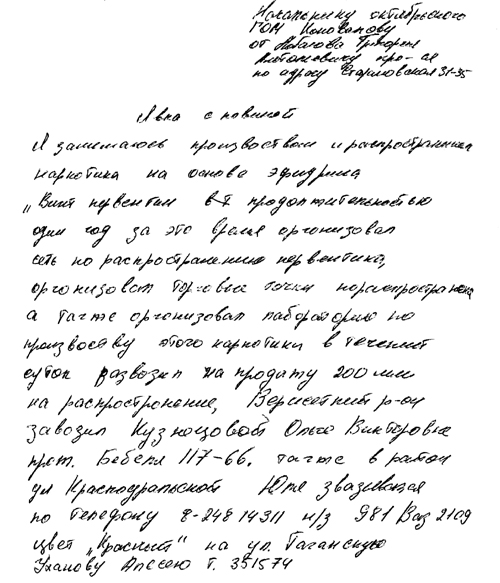 Начальнику октябрьского
ГОМ Коновалову
от Григория
Антоновичу про-ся
по адресу 31-35
Явка с повиной
Я занимаюсь произвоством и распространия
наркотика на основе эфидрина
„Винт первентин продолжительностью
один год за это время организовал
сеть по распространению первентина,
организовал торговые точки
а также организовал лабораторию по
произвоству этого наркотика в течений
суток развозил на продажу 200 мл
на распространение, р-он
завозил Кузнецовой Ольге Викторовне
прт. Бебеля 117-66. также в район
ул Красноуральской Юля
по телефону 8-2481431 н/з 981 Ваз 2109
цвет „Красный" на ул. Таганскую
Уханову Алексею т. 351574